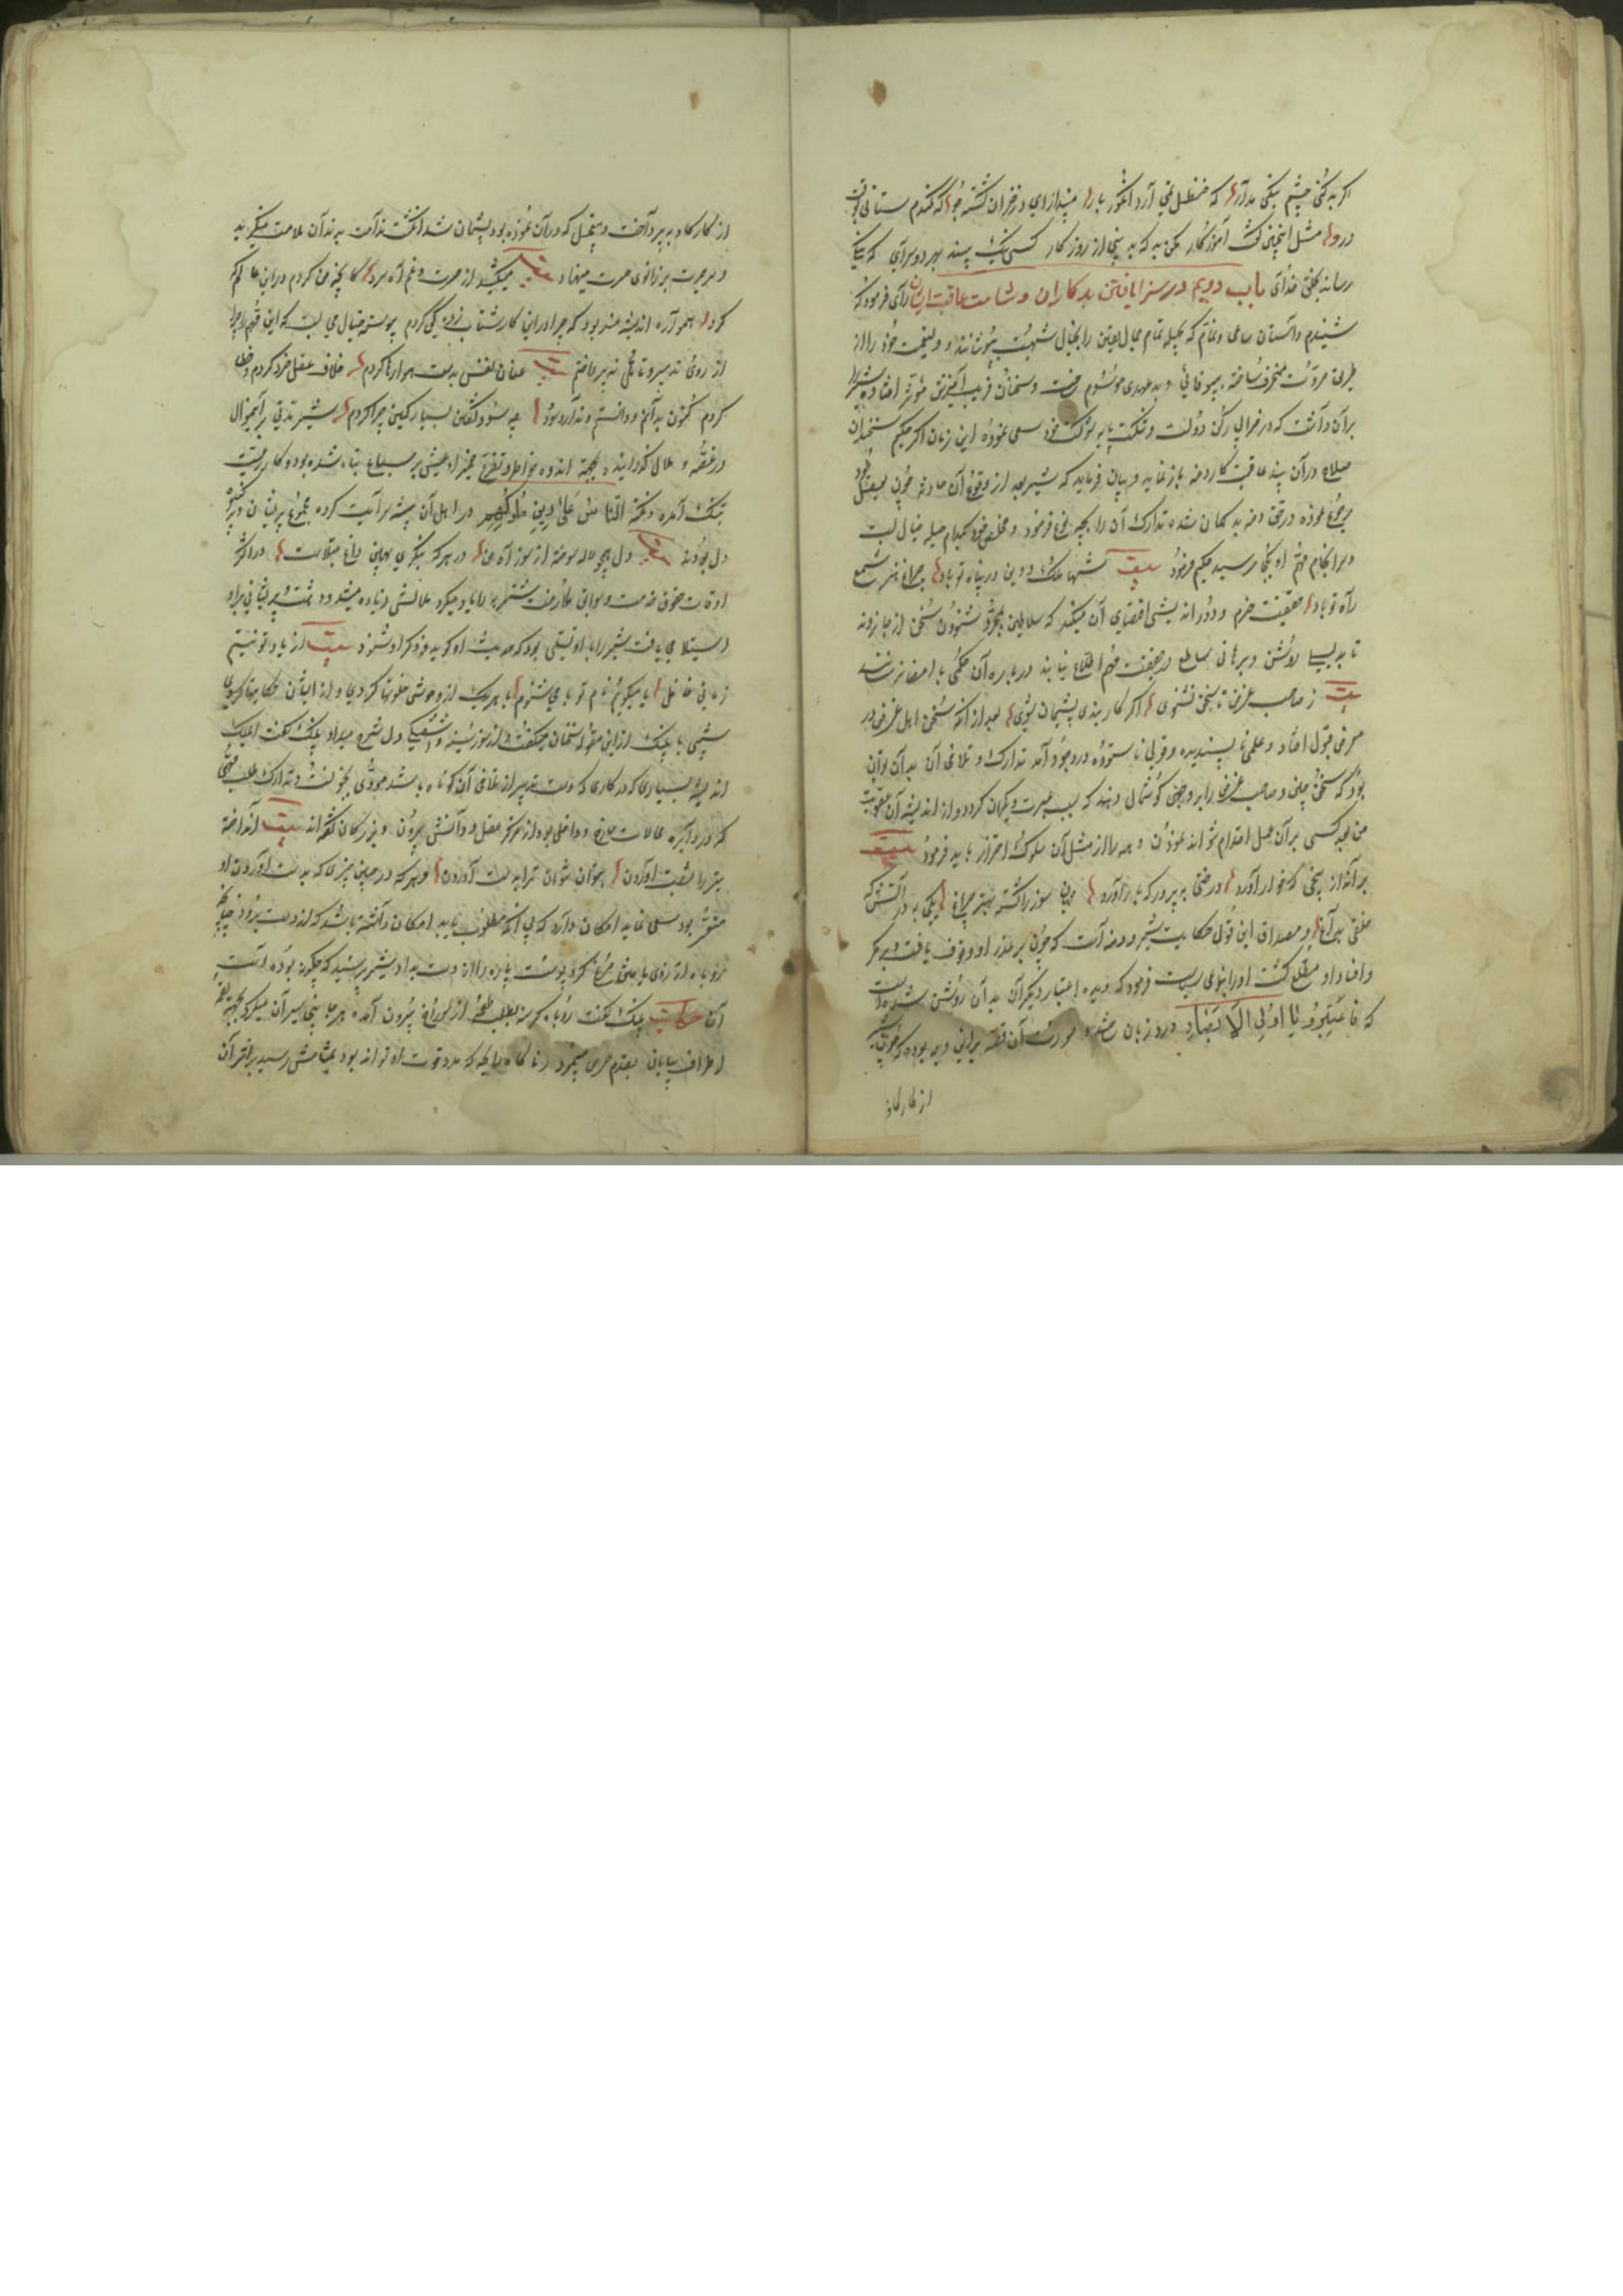 اگر بد کنی چشم نیکی مدار که حنظل نمی آرد انگور بار مپندار ای در خزان کشته جو که گندم ستانی بوقت
درو مثل اینچنین گفت آموزگار مکن بد که بد بینی از روزگار کسی نیک بیند بهر دو سرای که نیکی
رساند بخلق خدای باب دویم در سزا یافتن بدکاران و شامت عاقبت ایشان رای فرمود که
شنیدم داستان ساعی و نمام که بحیله تمام جمال یقین را بخیال شبهت بپوشانید و ولینعمت خود را از
طریق مروت منحرف ساخته به بیوفائی و بدعهدی موسوم ساخت و سخنان فریب آمیزش مؤثر افتاده شیر را
بر آن داشت که در خرابی رکن دولت و شکست پایه شوکت خود سعی نموده این زمان اگر حکیم سخندان
صلاح در آن بیند عاقبت کار دمنه باز نماید و بیان فرماید که شیر بعد از وقوع آن حادثه چون بعقل خود
رجوع نموده در حق دمنه بد گمان شده تدارک آن را بچه نوع فرمود و مخلص خود بکدام حیله خیال بست
و سرانجام مهم او بکجا رسید حکیم فرمود بیت شها ملک و دین در پناه تو باد چراغ هنر شمع
راه تو باد حقیقت حزم و دور اندیشی اقتضای آن میکند که سلاطین بمجرد شنودن سخن از جا نروند
تا بدلیل روشن و برهانی ساطع بر حقیقت مهم اطلاع نیابند در باره آن حکمی بامضا نرسانند
بیت ز صاحب غرض تا سخن نشنوی اگر کار بندی پشیمان شوی بعد از آنکه سخن اهل غرض در
معرض قبول افتاد و عملی ناپسندیده و قولی ناستوده در وجود آمد تدارک و تلافی آن بدان تواند
بود که سخن چین و صاحب غرض را بر وجهی گوشمال دهند که سبب عبرت دیگران گردد و از اندیشه آن عقوبت
من بعد کسی بر آن عمل اقدام نتواند نمودن و همه را از مثل آن سلوک احتراز باید فرمود بیت
برانداز بیخی که خار آورد درختی بپرور که بار آورد جهان سوز را کشته بهتر چراغ یکی به در آتش که
خلقی بداغ و مصداق این قول حکایت شیر و دمنه است که چون بر غدر او وقوف یافت و بر مکر
و افساد او مطلع گشت او را بنوعی سیاست فرمود که دیده اعتبار دیگران بدان روشن شده است
که فاعتبروا یا اولی الابصار ورد زبان و صورت آن قصه برانی وجه بوده که چون شیر
از کار گاو
از کار گاو بپرداخت و بتعجیل که در آن نموده بود پشیمان شد انگشت ندامت بدندان ملامت میگزید
و سر حیرت بر زانوی حسرت مینهاد میکشید از حسرت و غم آه سرد کانچه من کردم در این عالم که
کرد همواره اندیشه مند بود که چرا در این کار شتاب زدگی کردم پیوسته خیال می بست که این مهم را چرا
از روی تدبیر و تأمل نپرداختم بیت عنان نفس بدست هوا رها کردم خلاف عقل خرد کردم و خطا
کردم کنون بدانم و دانستم و ندارد سود چه سود گفتن بسیار کین چرا کردم شیر مدتی بر این منوال
در غصه و ملال گذرانیده بجهة اندوه خاطر و تفرق ضمیر او عیش بر سباع تباه شده بود و کار رعیت
بتنگ آمده و نکته الناس علی دین ملوکهم در اهل آن بیشه سرایت کرده مجموع پریشان
دل بودند دل همچو لاله سوخته از سوز آه من در هر که بنگری بهمین داغ مبتلاست در اکثر
اوقات حقوق خدمت و سوابق ملازمت شتربه را یاد میکرد ملالش زیاده میشد و پریشانی بر او
استیلا می یافت شیر را با او تسلی بود که حدیث او گوید و ذکر او شنود بیت از یاد تو نیستم
زمانی غافل یا میگویم نام تو یا می شنوم با هر یک از وحوش خلوتها کردی و از ایشان حکایتها کردی
شبی با پلنگ از این مقوله سخنان میگفت و از سوز سینه و دل شرح میداد پلنگ گفت ای ملک
اندیشه بسیاری که در کاری که دست تدبیر از تلافی آن کوتاه باشد مودی بجنونست و تدارک طلب مهمی
که در دایره محالات داخل بود از مرکز عقل و دانش بیرون و بزرگان گفته اند بیت انداخته
تیر را بشست آوردن بتوان نتوان ترا بدست آوردن و هر که در جستن چیزی که بدست آوردن او
متعذر بود سعی نماید امکان دارد که بی آنکه مطلوب یابد امکان داشته باشد که از دست برود چنانچه
روباه آرزوی پای مرغ کرد پوست پاره را از دست بداد شیر پرسید که چگونه بوده است
آن حکایت پلنگ گفت روباه گرسنه بطلب طعمه از سوراخ بیرون آمده هر جا سیر آن میکرد
اطراف بیابان بقدم حرص میپیمود ناگاه رایحه که مدد قوت او تواند بود بمشامش رسید بر اثر آن